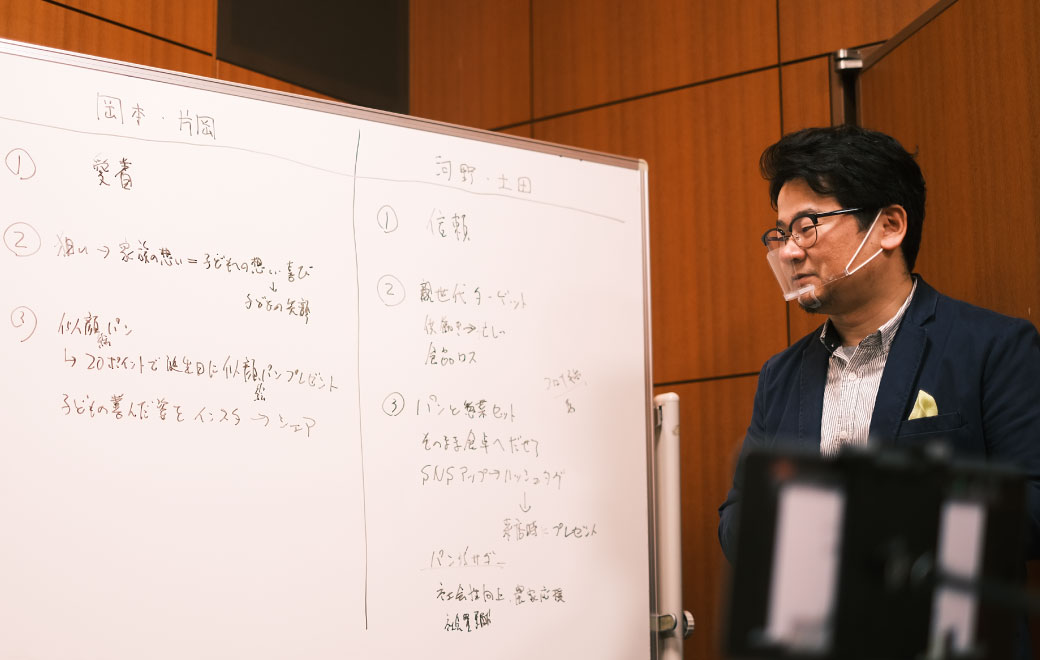 岡本・片岡
① 愛着
② 狙い→家族の想い=子どもへの想い・喜び
↓
子どもの笑顔
③ 似顔絵パン
↳ 20ポイントで誕生日に似顔絵パンプレゼント
子どもの喜んだ姿をインスタ→シェア
河野・土田
① 信頼
② 親世代ターゲット
食品ロス
③ パンと惣菜セット
そのまま食卓へだせる
SNSアップ→ハッシュタグ
↓
来店時にプレゼント
社会性向上、農家応援